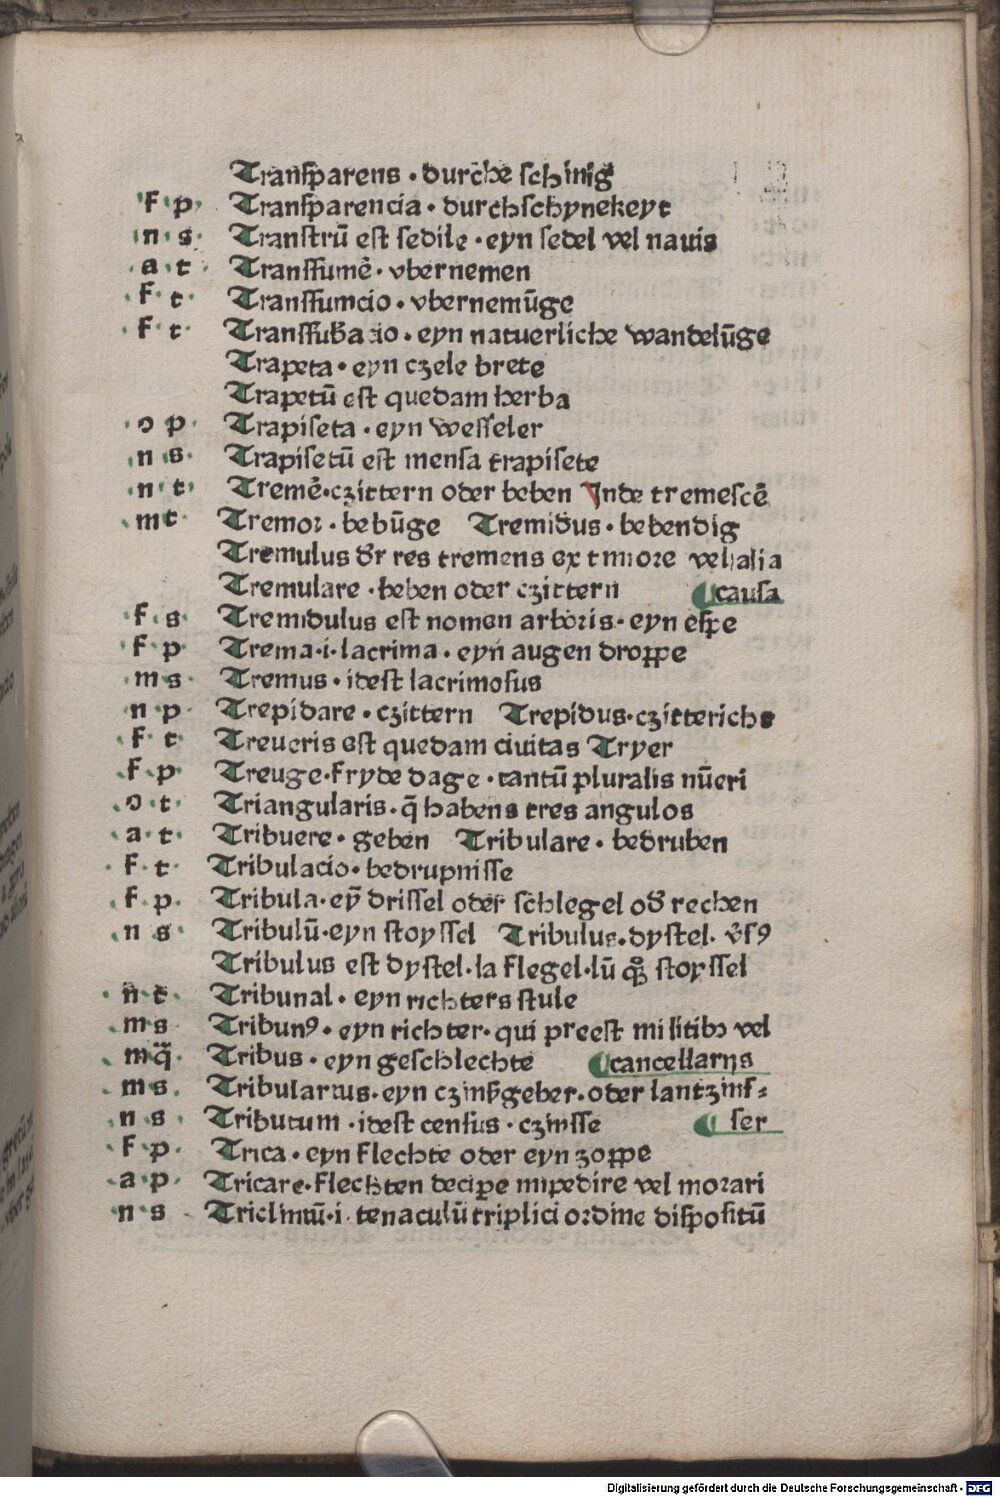 Transparens · durche schinig
f · p · Transparencia · durchschynekeyt
n · s · Transtrū est sedile · eyn sedel vel nauis
a · t · Transsumē̄ · vbernemen
f · t · Transsumcio · vbernemūge
f · t · eyn natuerliche wandelūge
Trapeta · eyn czele brete
Trapetū est quedam herba
o p · Trapiseta · eyn wesseler
n s · Trapisetū est mensa trapisete
n · t · Tremē · czittern oder beben Inde tremescē
m t · Tremor · bebūge Tremidus · bebendig
Tremulus res tremens ex vel alia
Tremulare · beben oder czittern causa
f · s · Tremidulus est nomen arboris · eyn espe
f · p Trema · i · lacrima · eyn augen droppe
m s · Tremus · idest lacrimosus
n · p Trepidare · czittern Trepidus · czitteriche
f · t · Treueris est quedam ciuitas Tryer
f · p · Treuge · fryde dage · tantū pluralis nūeri
o · t · Triangularis · q̄ habens tres angulos
a · t · Tribuere · geben Tribulare · bedruben
f · t · Tribulacio · bedrupnisse
f · p · Tribula · eȳ drissel oder schlegel od̛ rechen
n s · Tribulū · eyn stoyssel Tribulus · dystel · v̄sꝰ
Tribulus est dystel · la flegel · lū stoyssel
n · t · Tribunal · eyn richters stule
m · s Tribunꝰ · eyn richter · qui preest militibꝫ vel
m q̄ · Tribus · eyn geschlechte cancellarijs
m s · Tribularius · eyn czinßgeber · oder lantzins⸗
n · s · Tributum · idest census · czinsse ser
f · p · Trica · eyn flechte oder eyn zoppe
a · p · Tricare · flechten decipe impedire vel morari
n · s Tricliniū · i · tenaculū triplici ordine dispositū
Digitalisierung gefördert durch die Deutsche Forschungsgemeinschaft - DFG